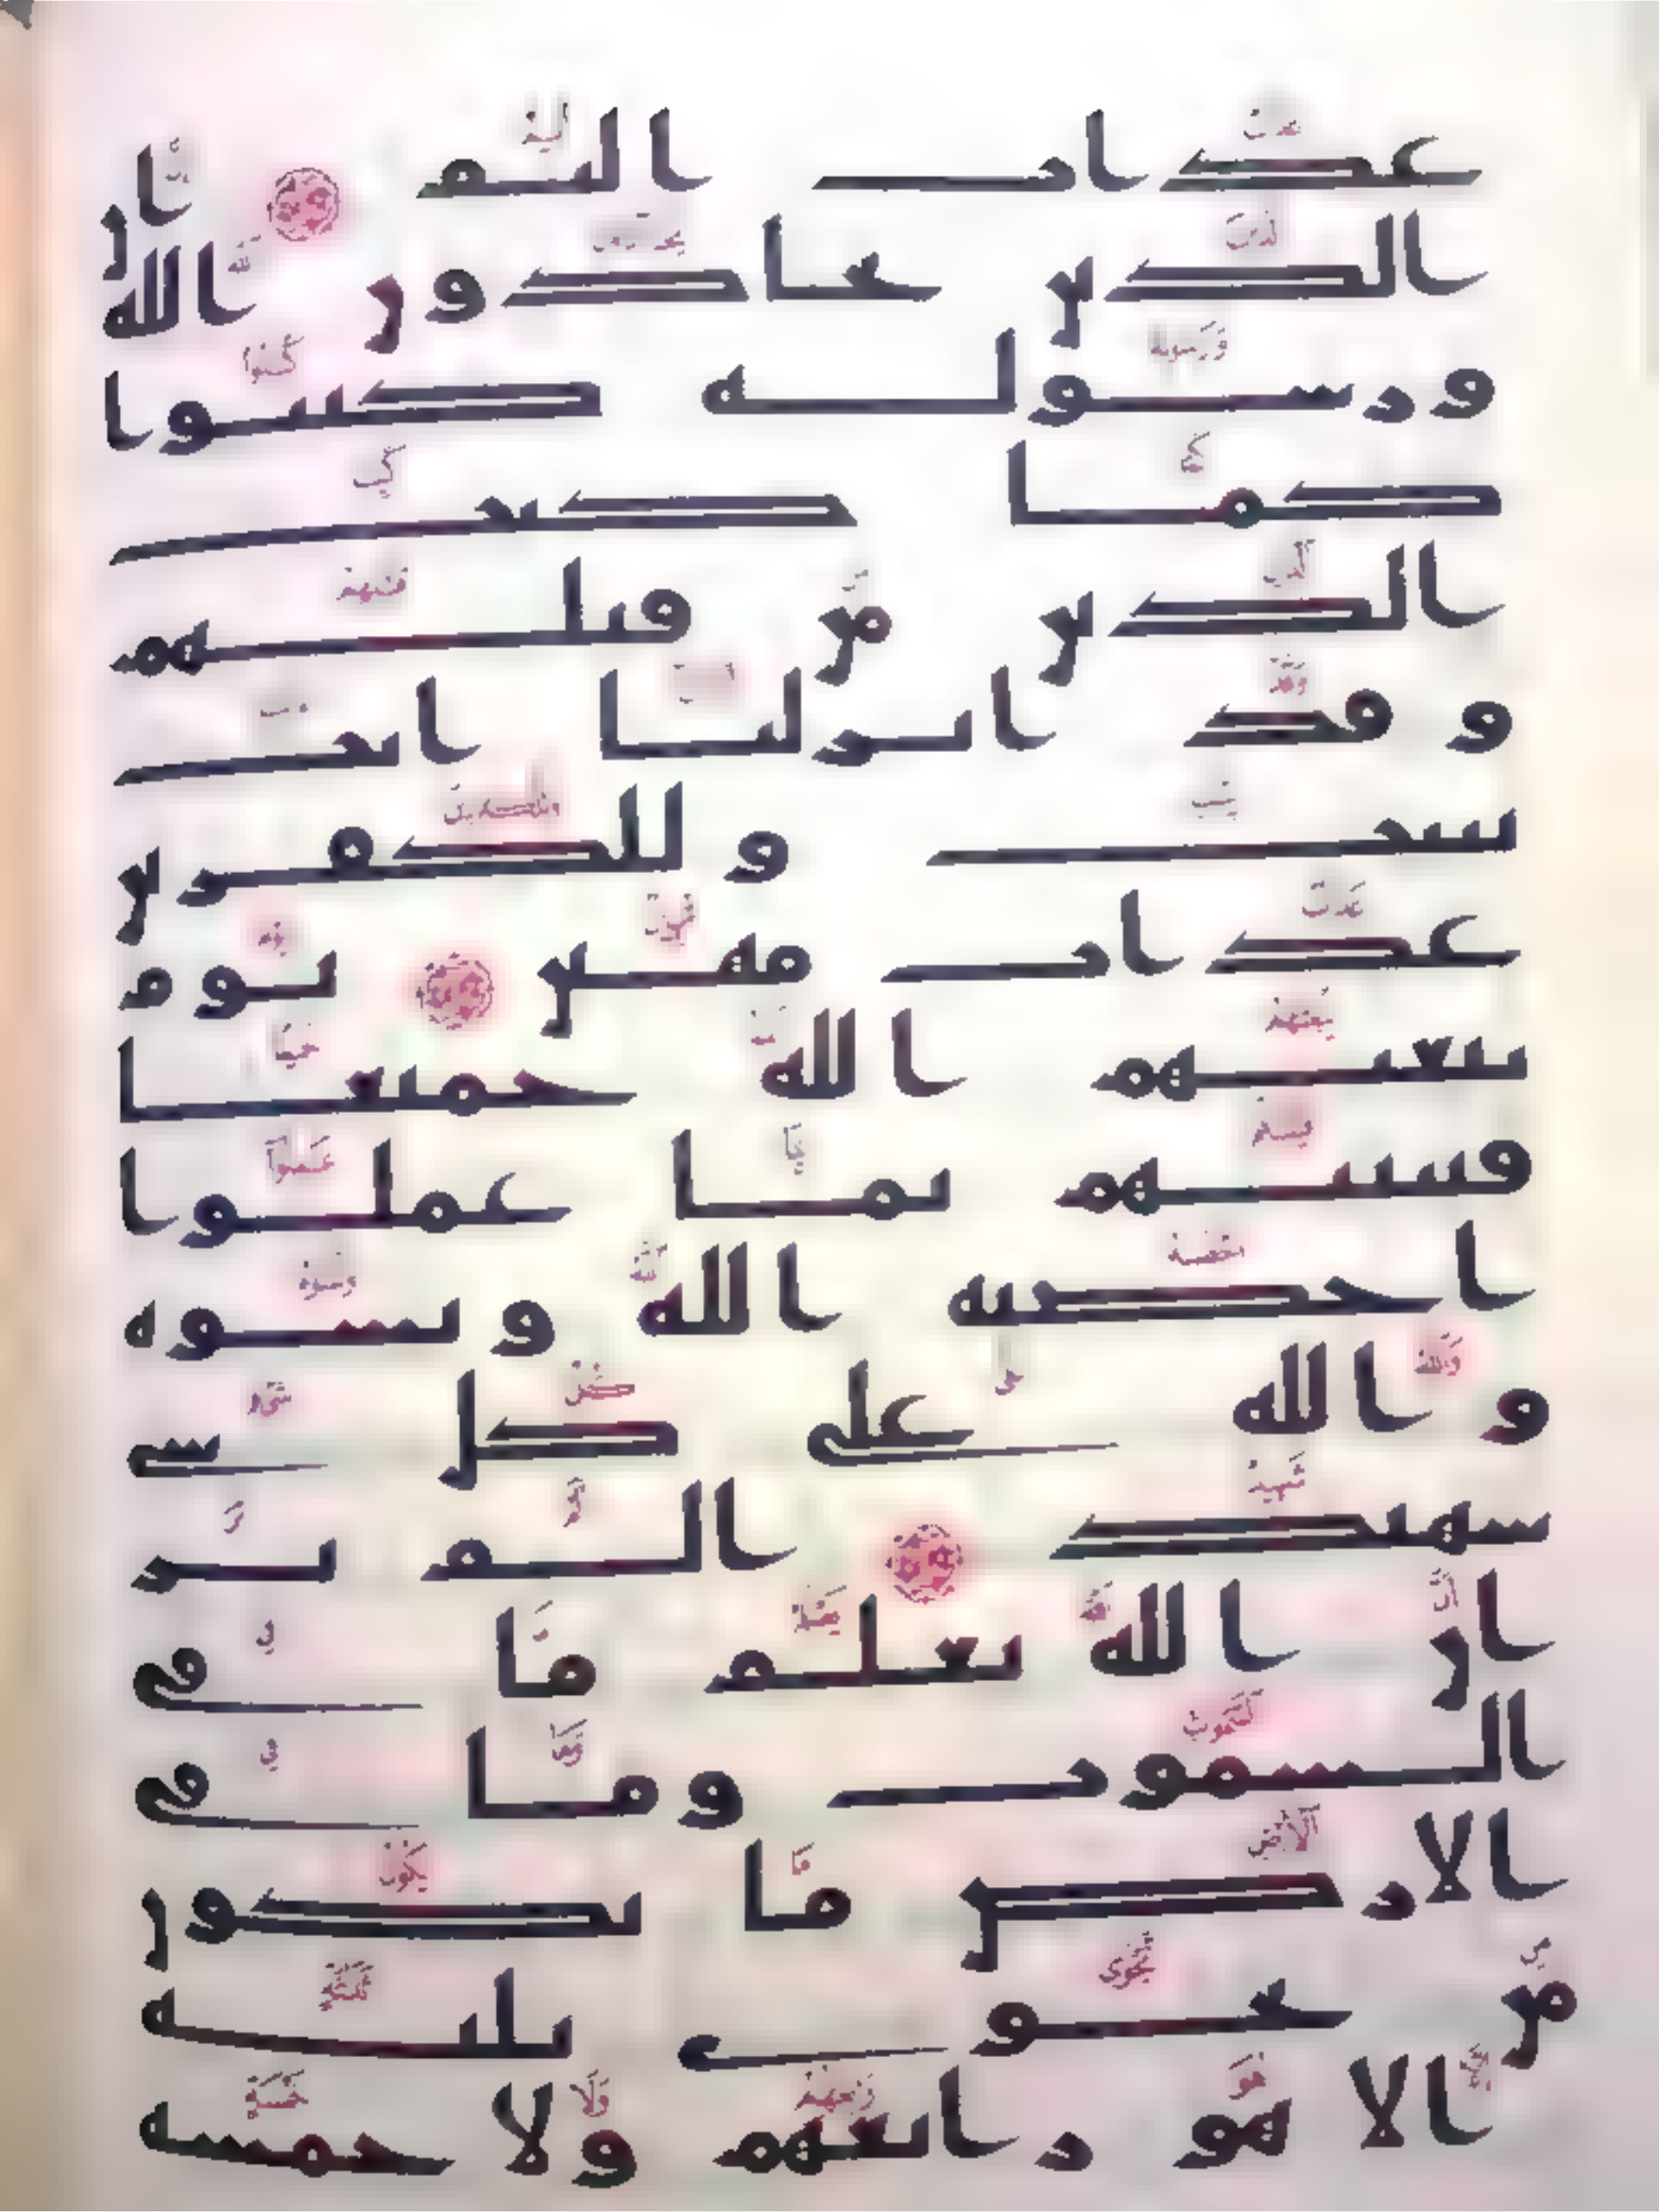 عذاب اليم ان
الذين يحادون الله
ورسوله كبتوا
كما كبت
الذين من قبلهم
وقد انزلنا ايت
بينت وللكفرين
عذاب مهين يوم
يبعثهم الله جميعا
فينبئهم بما عملوا
احصيه الله ونسوه
والله على كل شي
شهيد الم تر
ان الله يعلم ما في
السموت وما في
الارض ما يكون
من نجوى ثلثة
الا هو رابعهم ولا خمسة